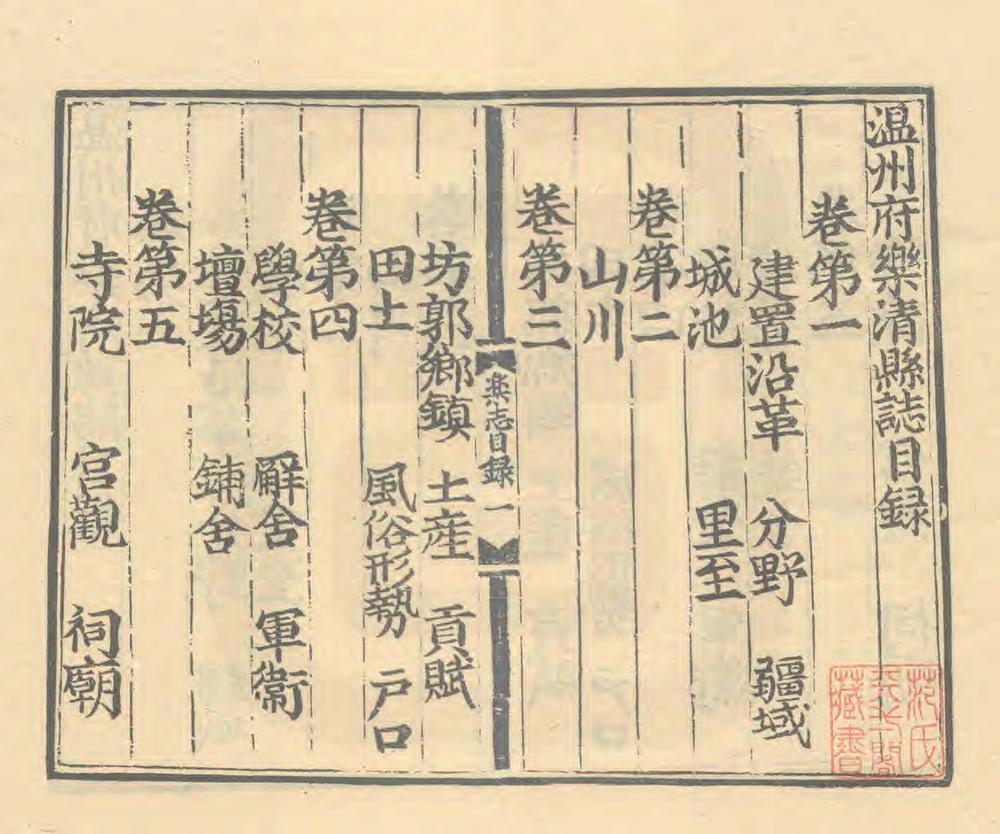 温州府樂清縣誌目録
卷第一
建置沿革 分野 疆域
城池 里至
卷第二
山川
卷第三
樂志目録 一
坊郭鄉鎮 土産 貢賦
田土 風俗形勢 戸口
卷第四
學校 廨舍 軍衛
壇場 鋪舍
卷第五
寺院 宫觀 祠廟
范氏天一閣藏書